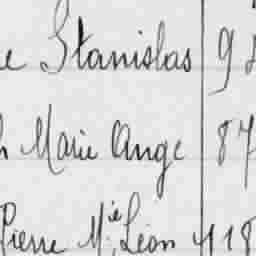 e Stanislas 9
h Marie Ange 87
Pierre Mie Léon 118